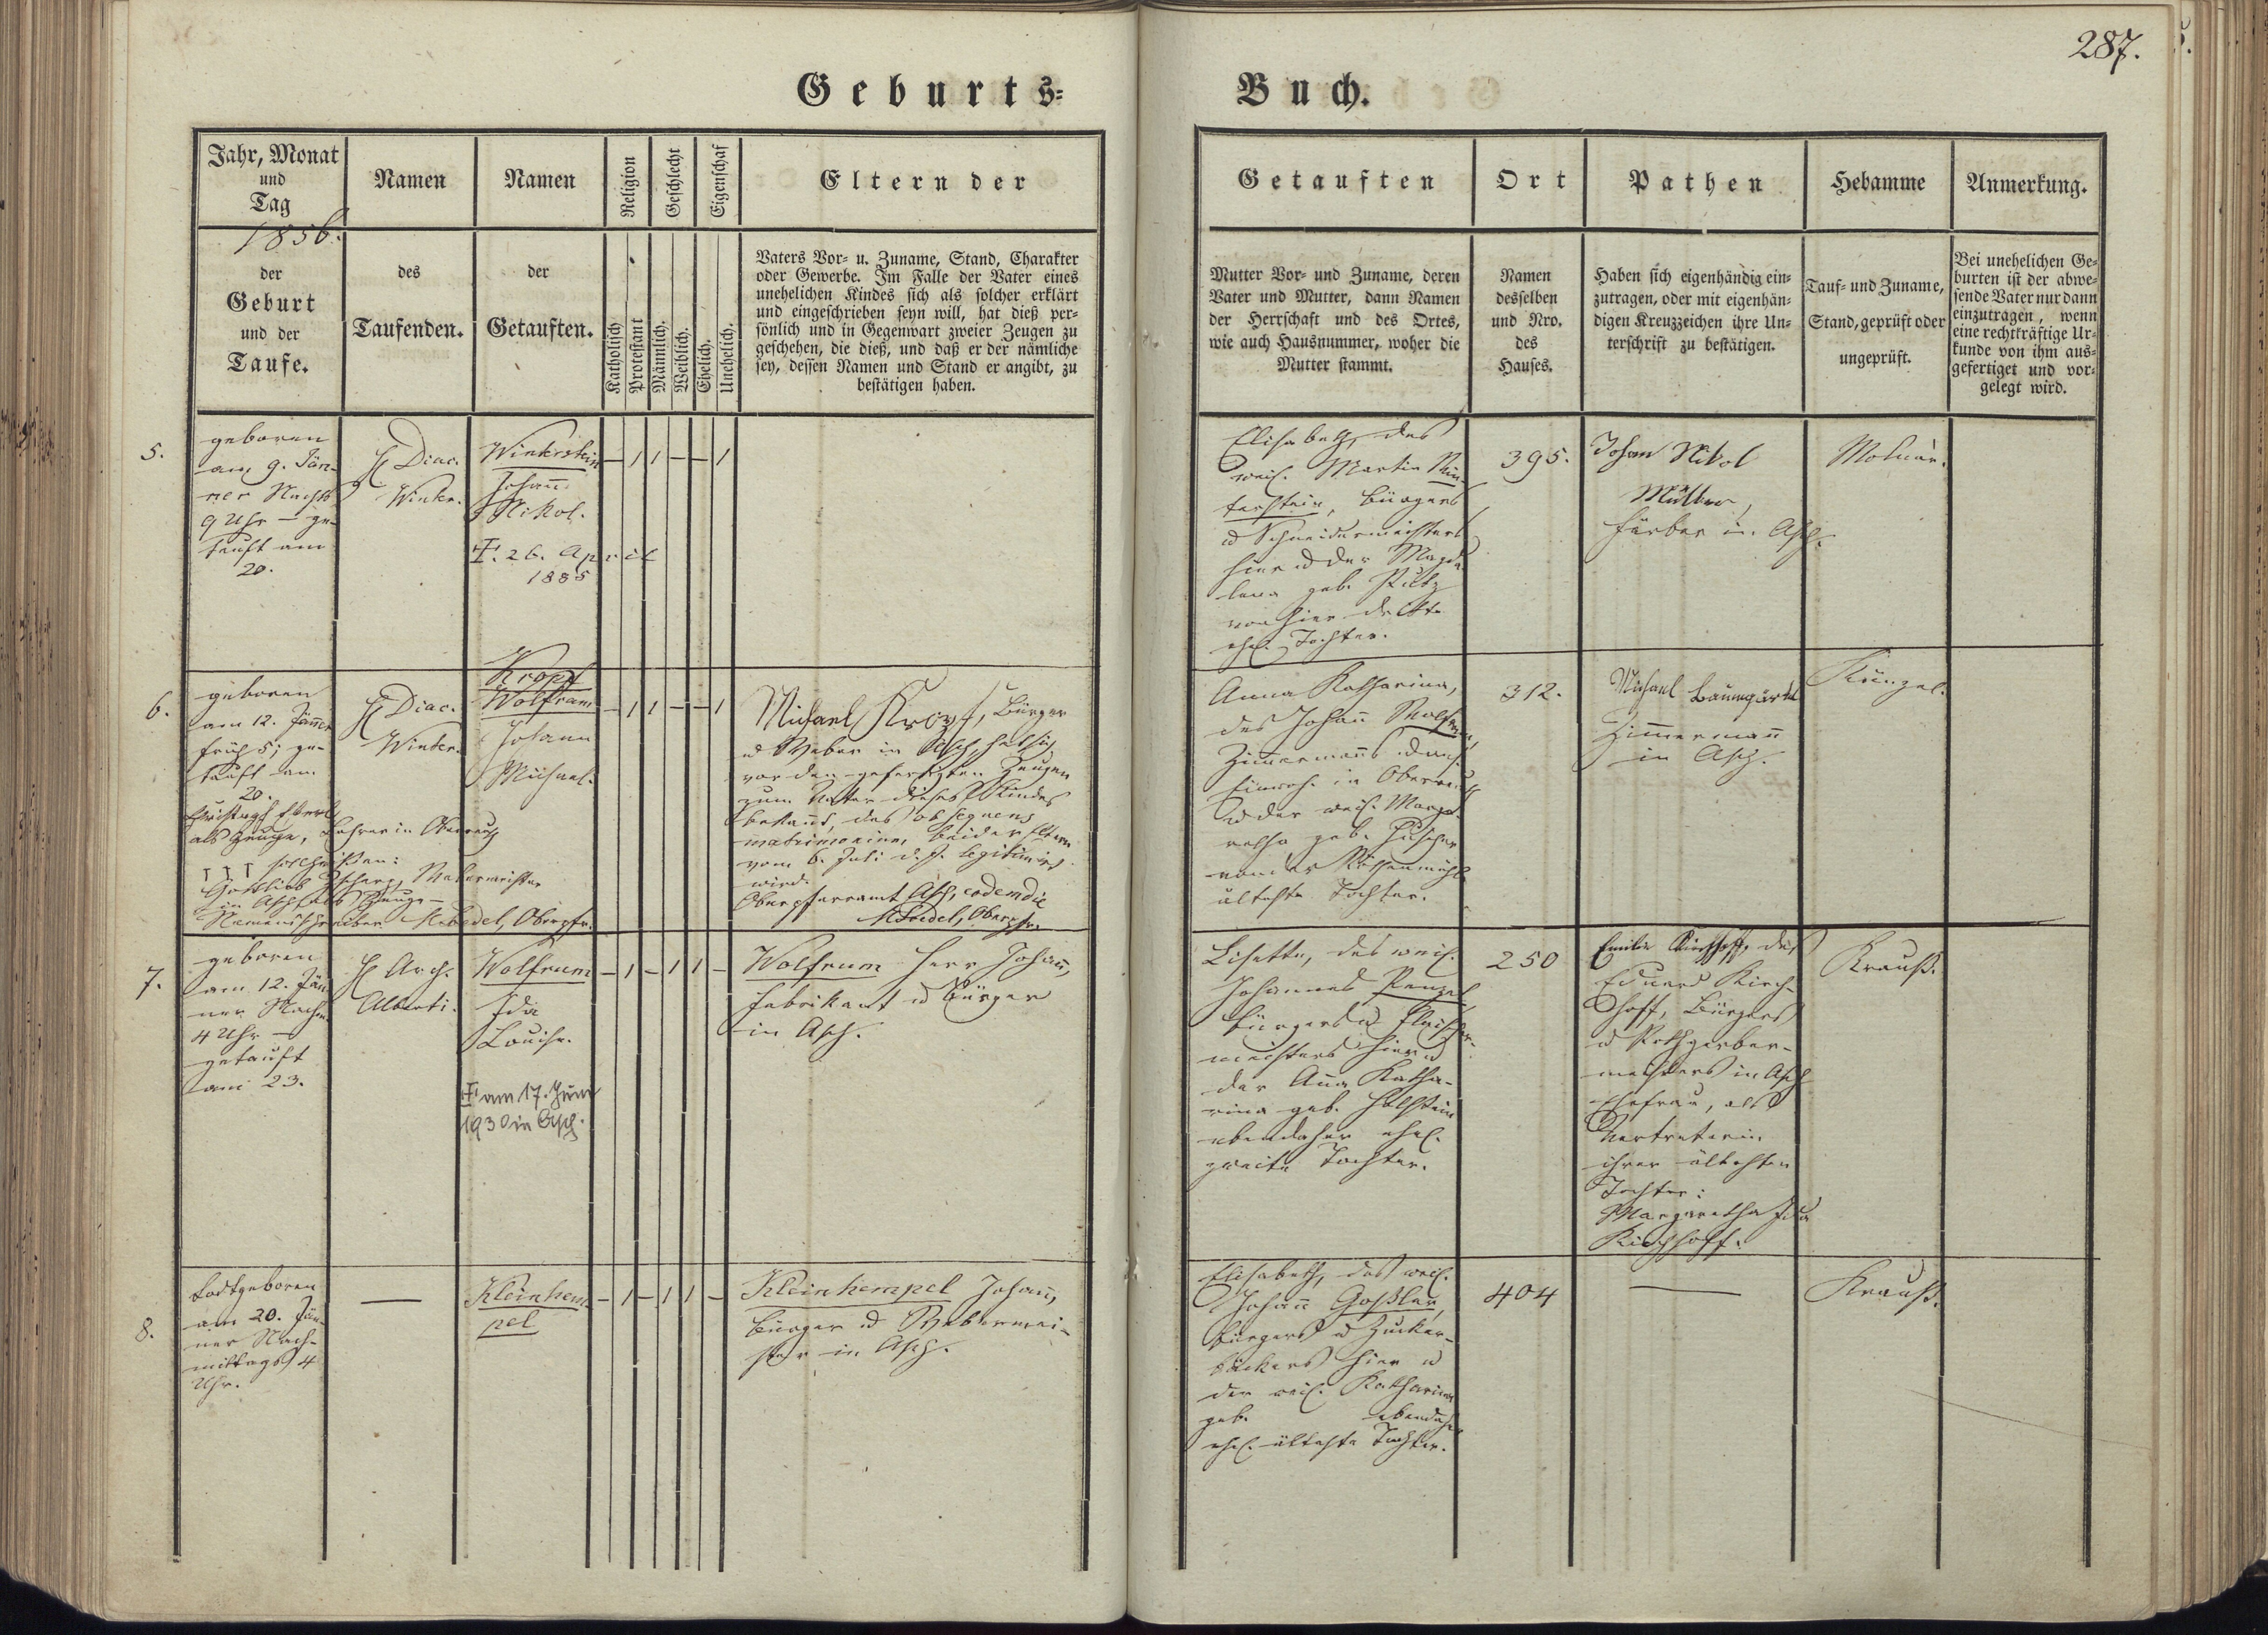 287.
Geburts-
Buch.
Jahr, Monat
und
Tag
1856.
der
Geburt
und der
Taufe.
Namen
des
Taufenden.
Namen
der
Getauften.
Religion
Katholisch
Protestant
Geschlecht
Männlich.
Weiblich.
Eigenschaf
Ehelich.
Unehelich.
Eltern der
Vaters Vor- u. Zuname, Stand, Charakter
oder Gewerbe. Im Falle der Vater eines
unehelichen Kindes sich als solcher erklärt
und eingeschrieben seyn will, hat dieß per-
sönlich und in Gegenwart zweier Zeugen zu
geschehen, die dieß, und daß er der nämliche
sey, dessen Namen und Stand er angibt, zu
bestätigen haben.
Getauften
Mutter Vor- und Zuname, deren
Vater und Mutter, dann Namen
der Herrschaft und des Ortes,
wie auch Hausnummer, woher die
Mutter stammt.
Ort
Namen
desselben
und Nro.
des
Hauses.
Pathen
Haben sich eigenhändig ein-
zutragen, oder mit eigenhän-
digen Kreuzzeichen ihre Un-
terschrift zu bestätigen.
Hebamme
Tauf- und Zuname,
Stand, geprüft oder
ungeprüft.
Anmerkung.
Bei unehelichen Ge-
burten ist der abwe-
sende Vater nur dann
einzutragen, wenn
eine rechtkräftige Ur-
kunde von ihm aus-
gefertiget und vor-
gelegt wird.
5.
geboren
am 9. Jän-
ner Nachts
9 Uhr – ge-
tauft am
20.
H Diac.
Winter.
Winterstein
Johann
Nikol.
26. April
1885
– 1 1 – – 1
Elisabeth, des
weil. Martin Win-
terstein, Bürgers
u Schneidermeisters
hier u der Magda-
lena geb. Putz
von hier
ehel. Tochter.
395.
Johann Nikol
Müller,
Färber in Asch.
Molnár.
6.
geboren
am 12. Jänner
früh 5; ge-
tauft am
20.
als Zeuge, Lehrer in Oberreuth
Gottlieb
in Asch als Zeuge –
Namensschreiber Oberpfr.
H Diac.
Winter.
Kropf
Wolfram
Johann
Michael.
– 1 1 – – 1
Michael Kropf, Bürger
u Weber in Asch, hat sich
vor den gefertigten Zeugen
zum Vater dieses Kindes
bekannt, das ob sequens
matrimonium beider Eltern
vom 6. Juli d. J. legitimirt
wird.
Oberpfarramt Asch, eodem die
Oberpfr.
Anna Katharina,
des Johann Wolfram,
Zimmermanns
Einwoh. in Oberreuth
u der weil. Marga-
retha, geb.
von der
älteste Tochter.
312.
Michael Baumgärtel
Zimmermann
in Asch.
Künzel.
7.
geboren
am 12. Jän-
ner Nachm.
4 Uhr –
getauft
am 23.
H Arch.
Alberti.
Wolfrum
Ida
Louise.
am 17. Juni
1930 in Asch.
– 1 – 1 1 –
Wolfrum Herr Johann,
Fabrikant u Bürger
in Asch.
Lisette, des weil.
Johannes Penzel
Bürgers u Fleischer-
meisters hier u
der Anna Katha-
rina geb. Holstein
ebendaher ehel.
zweite Tochter.
250
Emilie Kirchhoff, des
Eduard Kirch-
hoff, Bürgers
u Rothgerber-
meisters in Asch
Ehefrau, als
Vertreterin
ihrer ältesten
Tochter:
Margaretha Ida
Kirchhoff.
Krauß.
8.
todtgeboren
am 20. Jän-
ner Nach-
mittags 4
Uhr.
—
Kleinhem-
pel
– 1 – 1 1 –
Kleinhempel Johann,
Bürger u Webermei-
ster in Asch.
Elisabeth, des weil.
Johann Goßler,
Bürgers u Zucker-
bäckers hier u
der weil. Katharina
geb. ebendaher
ehel. älteste Tochter.
404
—
Krauß.